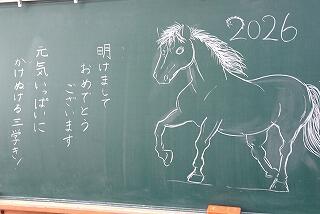 2026
明けまして
おめでとう
ございます
元気いっぱいに
かけぬける三学き！